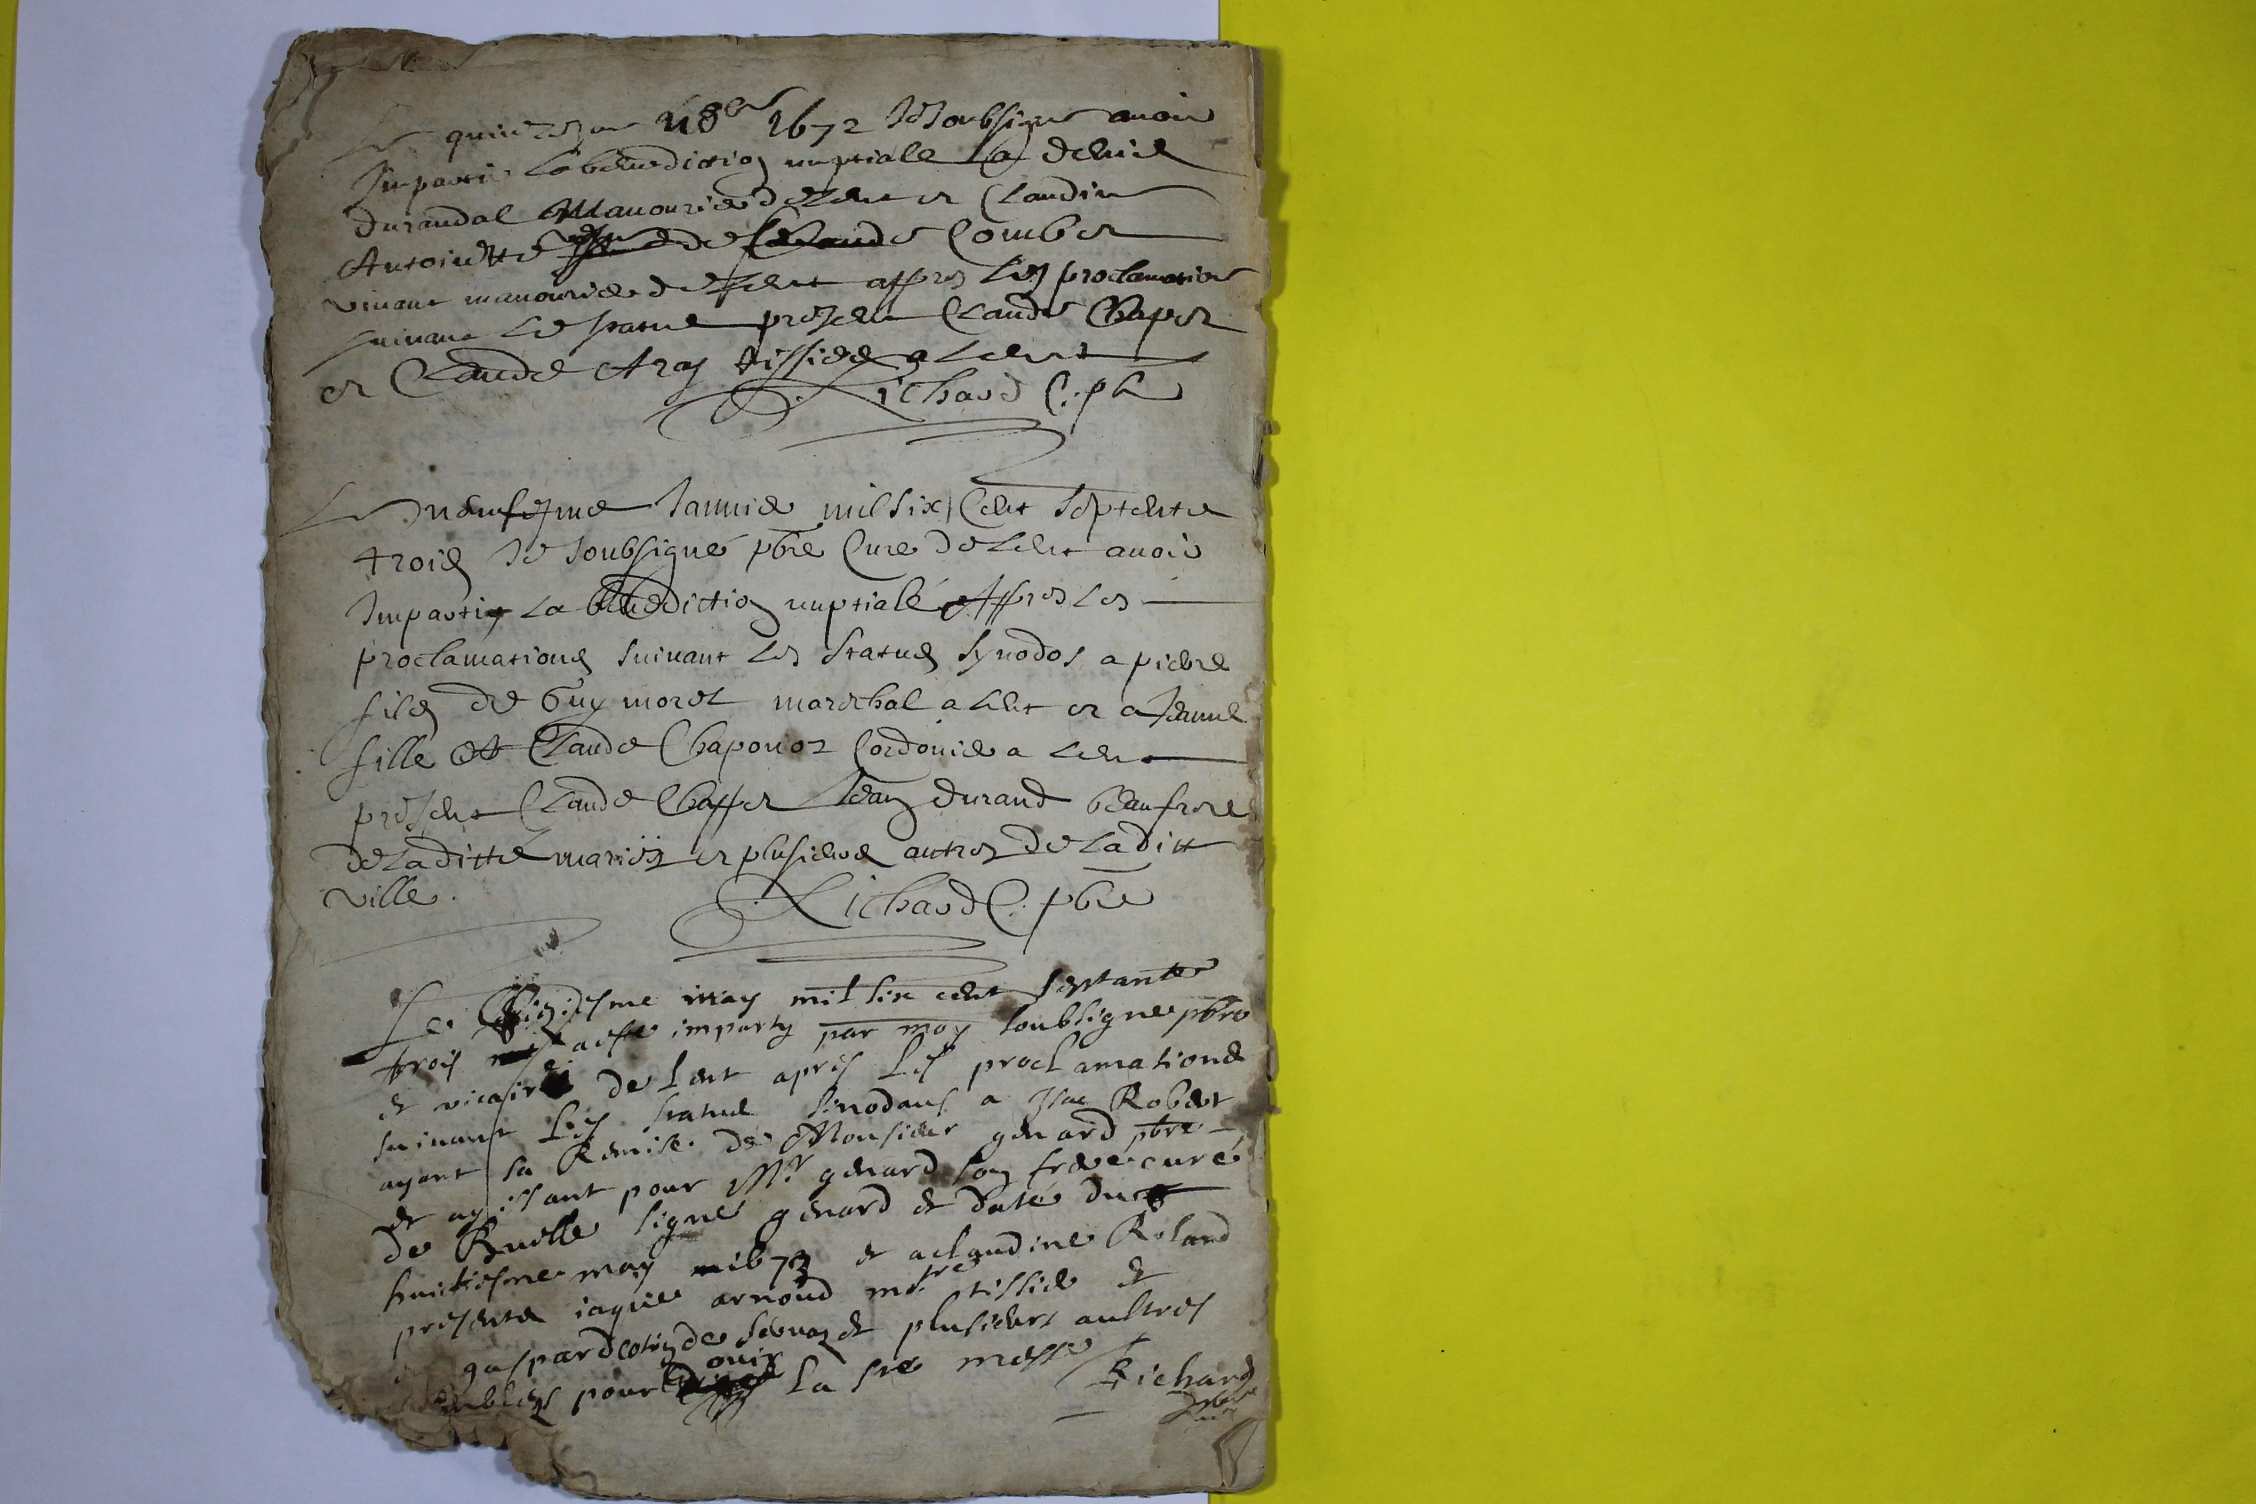 Le quinziesme 9bre 1672 Je soubsigne avoir
Imparti la benediction nuptiale a denis
durandal Manourier de Lent et Claudine
Antoinette de Claude Combet
vivant manourier de Lent appres les proclamation
suivant les statue present Claude Chapet
et Claude Aray tissier a Lent
Richard C. pbr
Le neufiesme Janvier mil six Cent septente
trois Je soubsigné pbre Cure de Lent avoir
Imparty La benediction nuptialé Appres Les
proclamations suivant les statues synodos a pierre
fils de Guy moret marechal a Lent et a Jeanne
fille de Claude Chaponot Cordonier a Lent
present Claude Chappet Jean durand beaufrere
de La ditte mariés et plusieurs autres de La ditt
ville.
Richard C. pbre
Le may mil six cent septante
trois a este imparty par moy soubsigne pbre
et vicaire de Lent apres les proclamations
suivant les statue sinodaus a Isac Robert
ayant sa Remise de Monsieur genard pbre
et agissant pour Mr genard son frere curé
de Ruille signé genard et daté du
huictiesme may 1673 et a claudine Roland
presents iaque arnoud mtre tissier et
gaspard cotin de servaz et plusieurs aultres
assemblez pour ouir la ste messe
Richard
pbre